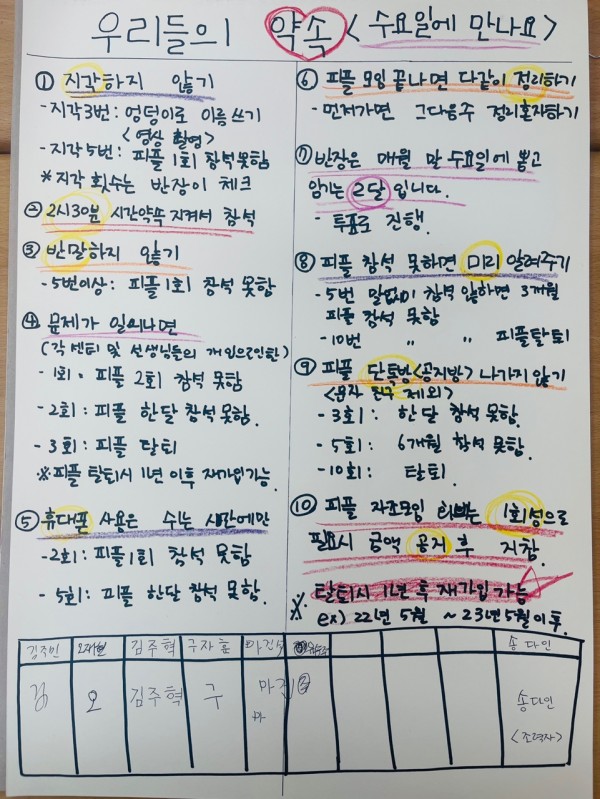 우리들의 약속 <수요일에 만나요>
① 지각하지 않기
- 지각3번: 엉덩이로 이름쓰기
<영상 촬영>
- 지각 5번: 피플 1회 참석못함
* 지각 횟수는 반장이 체크
② 2시30분 시간약속 지켜서 참석
③ 반말하지 않기
- 5번이상: 피플 1회 참석 못함
④ 문제가 일어나면
(각 센터 및 선생님들의 개입으로인한)
- 1회: 피플 2회 참석 못함
- 2회: 피플 한달 참석 못함.
- 3회: 피플 탈퇴
※피플 탈퇴시 1년 이후 재가입 가능.
⑤ 휴대폰 사용은 쉬는 시간에만
- 2회: 피플1회 참석 못함
- 5회: 피플 한달 참석 못함.
⑥ 피플 모임 끝나면 다같이 정리하기
- 먼저가면 그다음주 정리혼자하기
⑦ 반장은 매월 말 수요일에 뽑고
임기는 2달 입니다.
- 투표로 진행
⑧ 피플 참석 못하면 미리 알려주기
- 5번 말없이 참석 않하면 3개월
피플 참석 못함
- 10번 〃 〃 피플탈퇴
⑨ 피플 단톡방<공지방> 나가지 않기
제외>
- 3회: 한달 참석 못함.
- 5회: 6개월 참석 못함.
- 10회: 탈퇴
⑩ 피플 자조모임 회비는 1회성으로
필요시 금액 공지 후 지참.
※ 탈퇴시 1년 후 재가입 가능
ex) 22년 5월 ~ 23년 5월 이후.
김주민 오재현 김주혁 구자훈 송다인
김 오 김주혁 구 마진 송다인
마 <조력자>